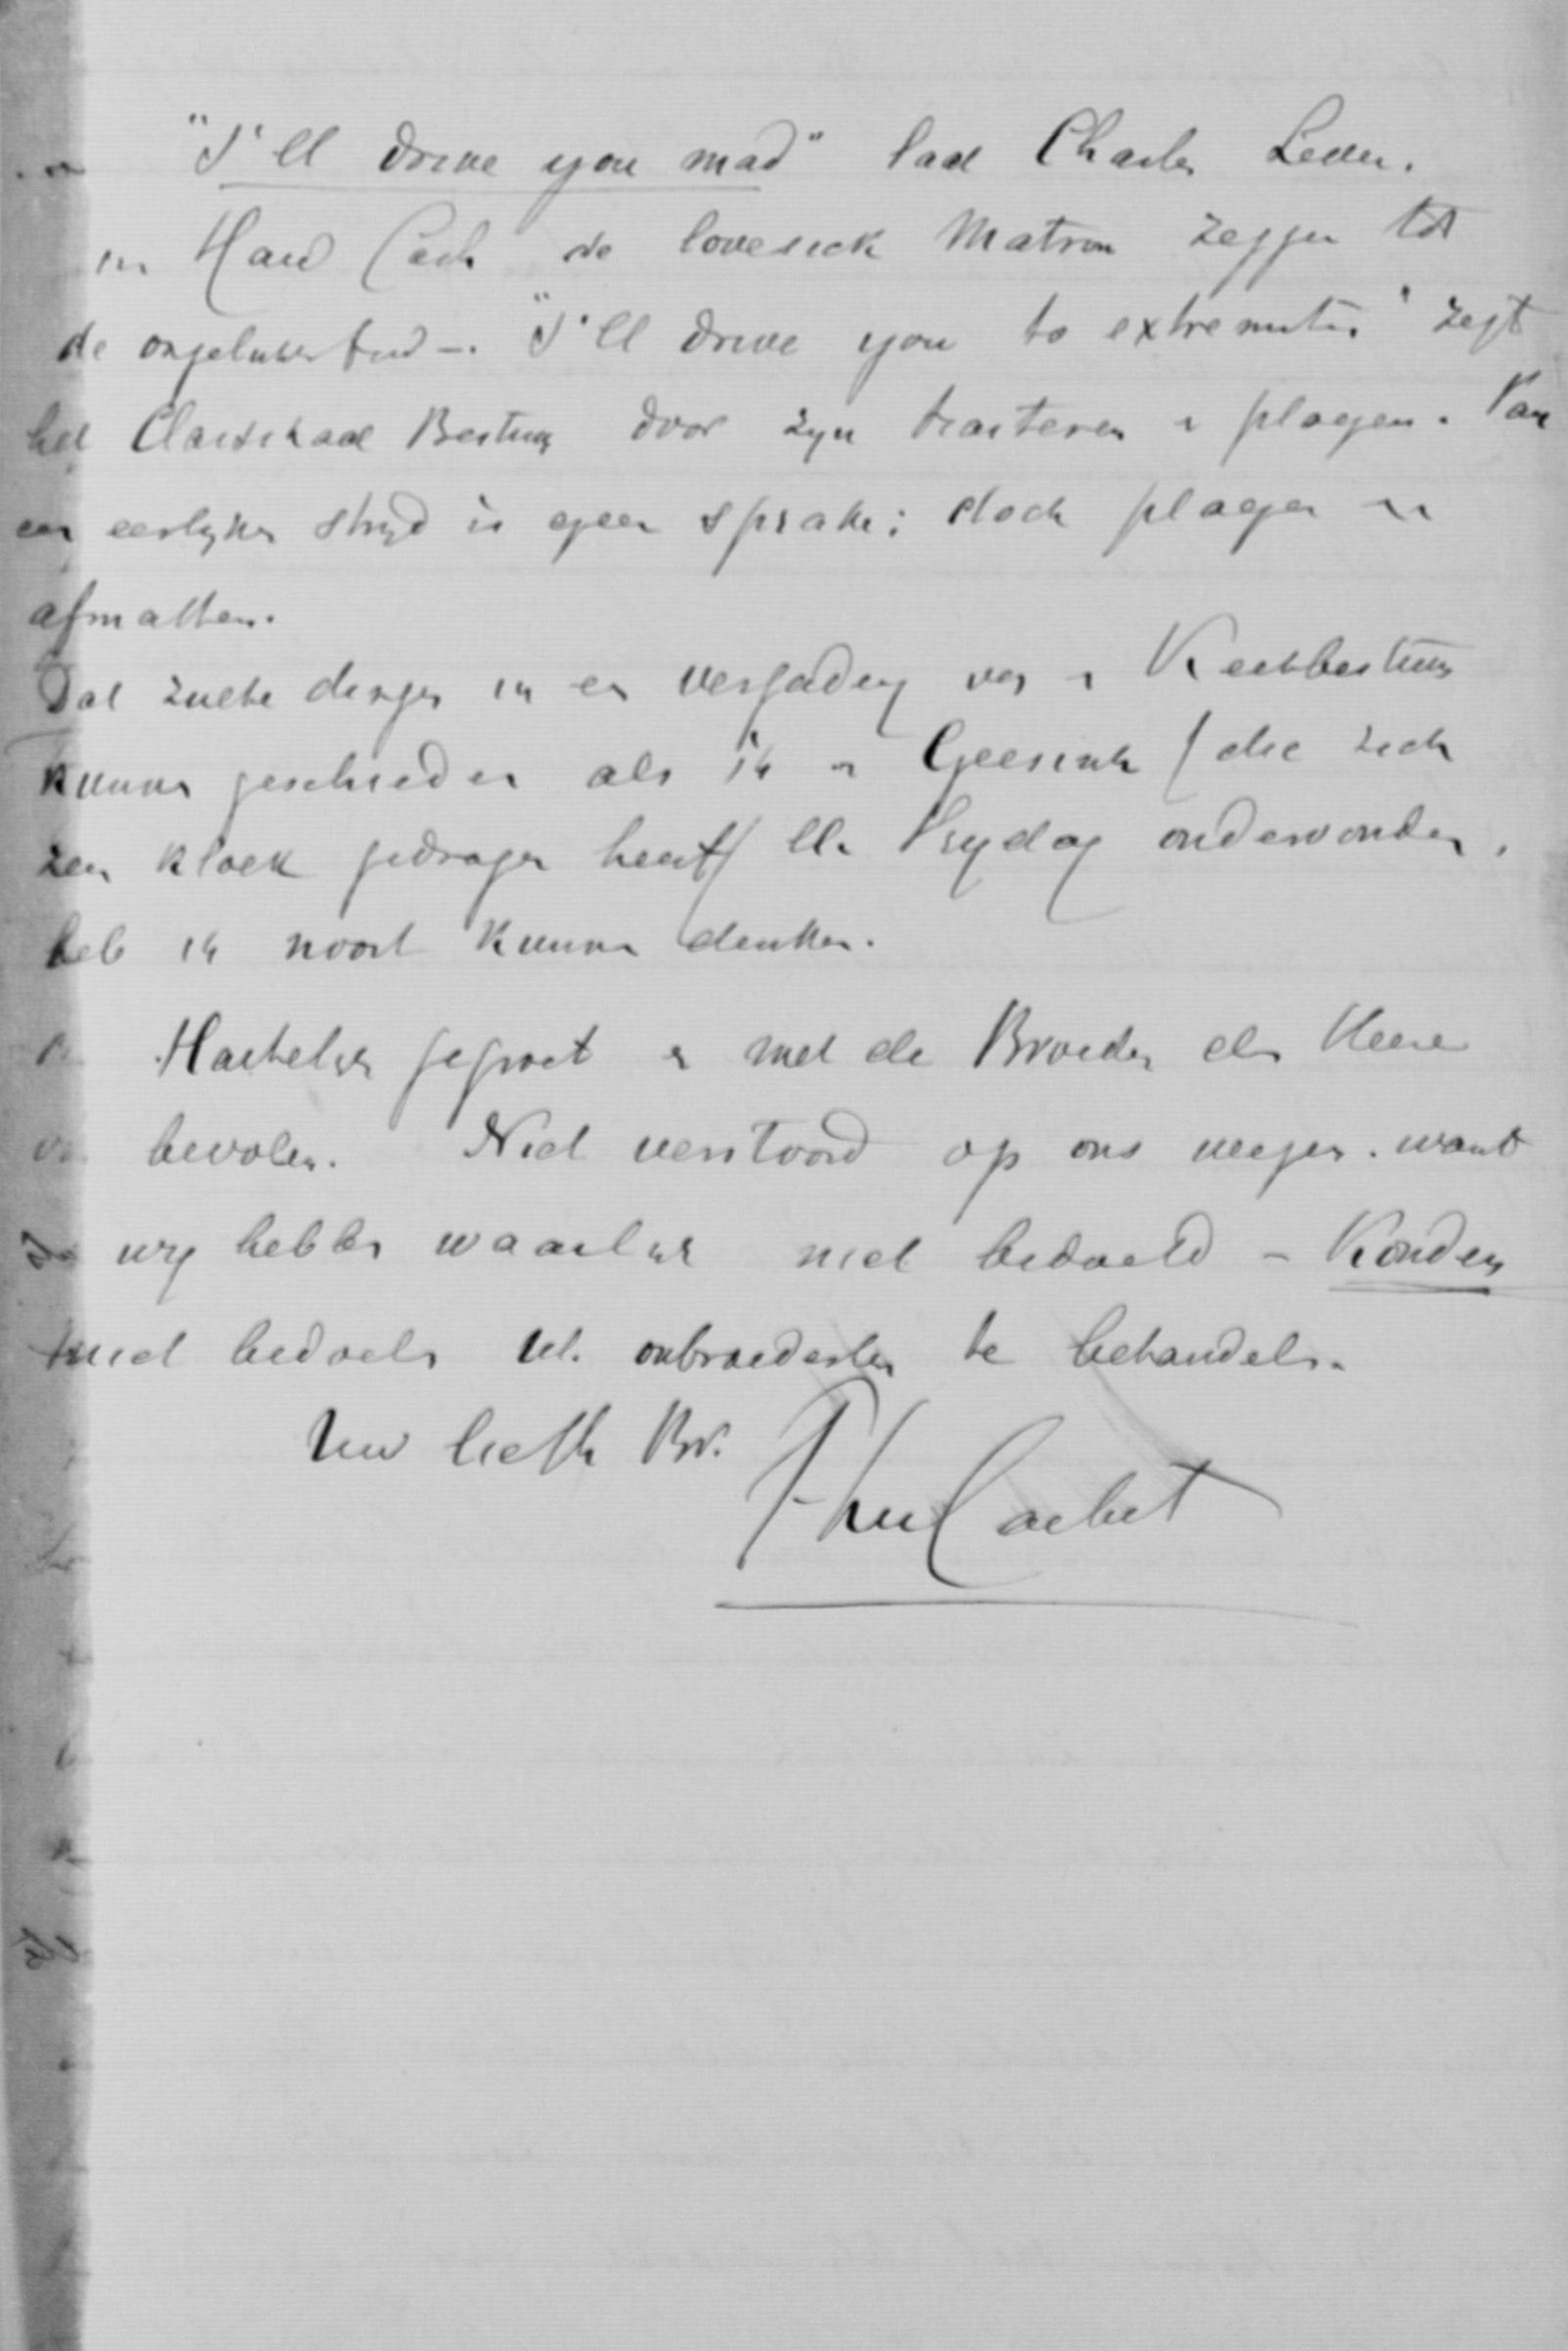 "I'll drive you mad" laat Charles Lever.
in Hard Cash de lovesick Matron zeggen tot
de ongelukkige –. "I'll drive you to extremities" zegt
het Classikaal Bestuur door zyn tracteren en plagen. Van
een eerlyken stryd is geen sprake; doch plagen en
afmatten.
Dat zulke dingen in een vergadering van een Kerkbestuur
kunnen geschieden als ik en Geesink (die zich
zeer kloek gedragen heeft) ll. Vrydag ondervonden,
heb ik nooit kunnen denken.
Hartelyk gegroet en met de Broeders den Heere
bevolen. Niet verstoord op ons want
wy hebben waarlyk niet bedoeld – Konden
niet bedoelen Ul. onbroederlyk te behandelen.
Uw liefh Br.
F Lion Cachet